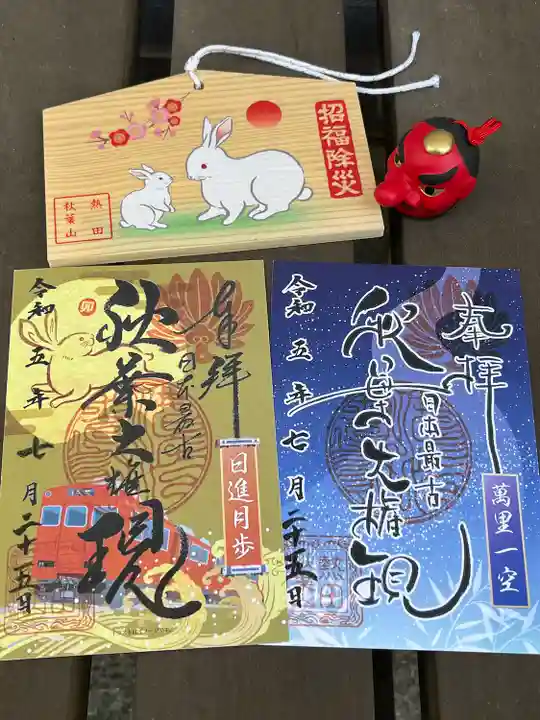 招福除災
熱田
秋葉山
奉拝
日本最古
秋葉大権現
日進月歩
令和五年七月二十五日
卯
奉拝
日本最古
秋葉大権現
萬里一空
令和五年七月二十五日